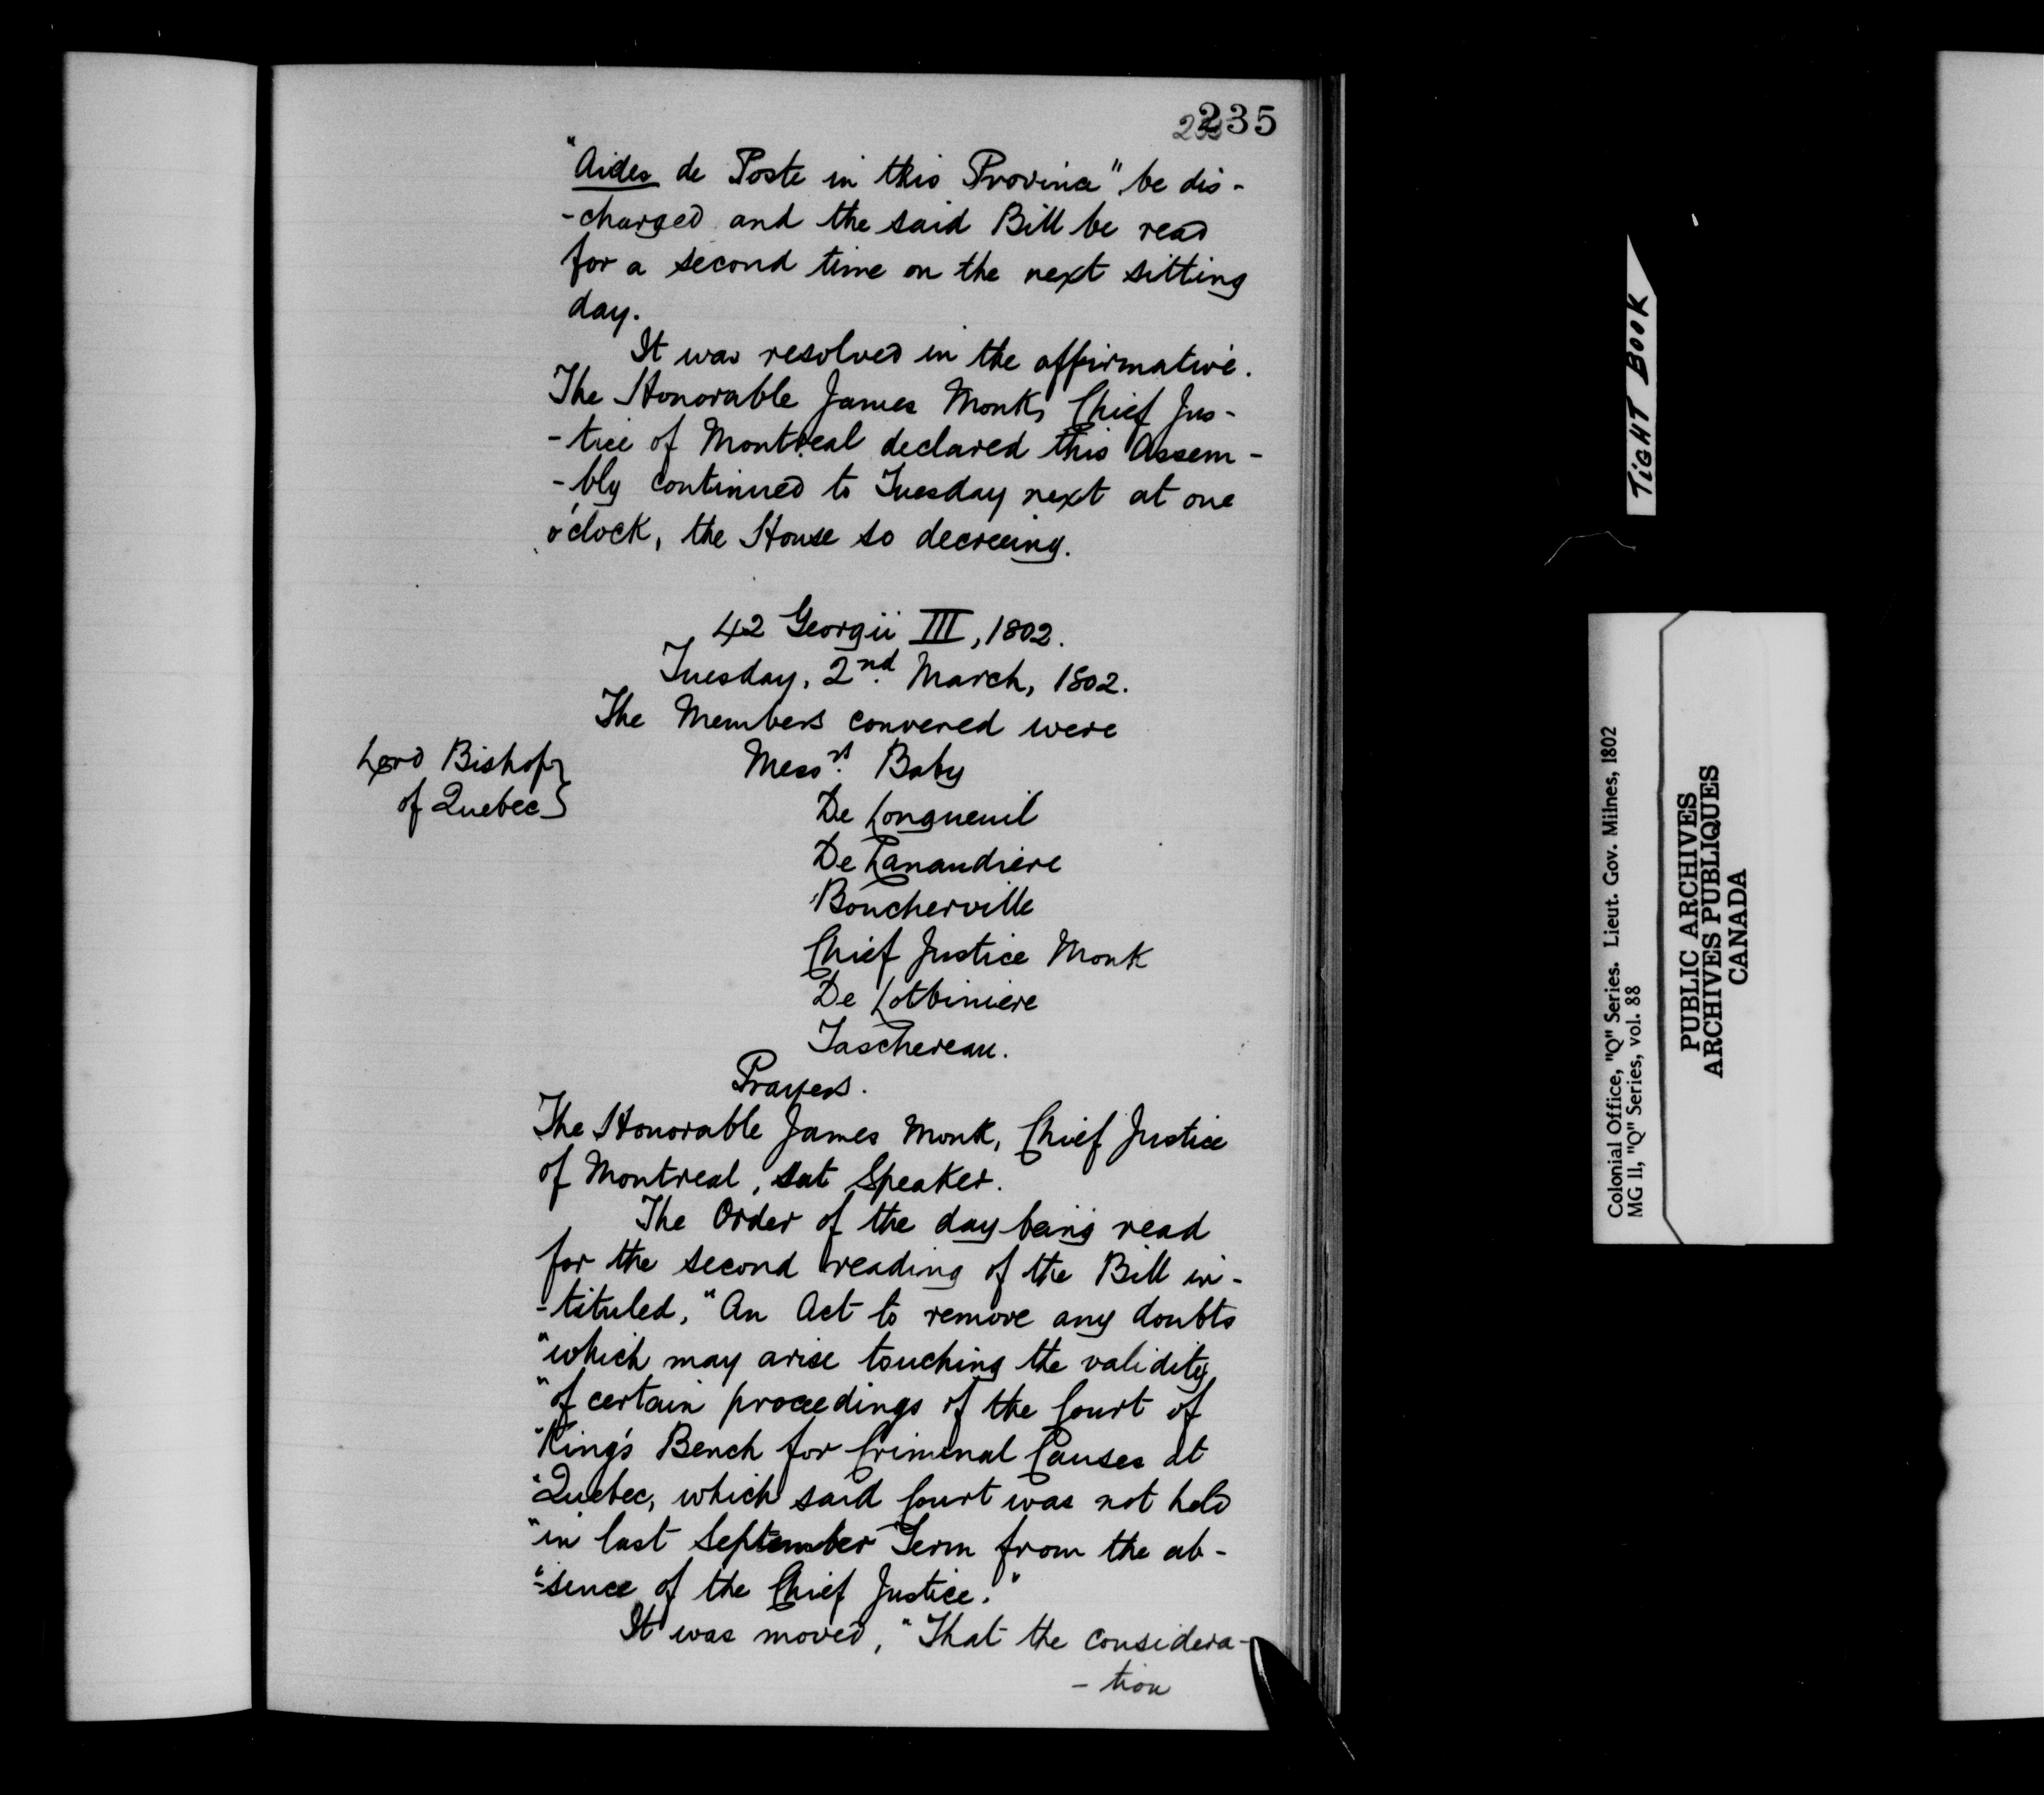 235
"Aides de Poste in this Province" be dis-
-charged and the said Bill be read
for a second time on the next sitting
day.
It was resolved in the affirmative.
The Honorable James Monk, Chief Jus-
-tice of Montreal declared this Assem-
-bly continued to Tuesday next at one
o'clock, the House so decreeing.
42 Georgii III, 1802.
Tuesday, 2nd. March, 1802.
The Members convened were
Lord Bishop
of Quebec
Messrs. Baby
De Longueuil
De Lanaudiere
Boucherville
Chief Justice Monk
De Lotbiniere
Taschereau.
Prayers.
The Honorable James Monk, Chief Justice
of Montreal, sat Speaker.
The Order of the day being read
for the second reading of the Bill in-
-tituled, "An Act to remove any doubts
"which may arise touching the validity
"of certain proceedings of the Court of
"King's Bench for Criminal Causes at
"Quebec, which said Court was not held
"in last September Term from the ab-
"-sence of the Chief Justice."
It was moved, "That the considera-
-tion
TIGHT BOOK
Colonial Office, "Q" Series. Lieut. Gov. Milnes, 1802
MG 11, "Q" Series, vol. 88
PUBLIC ARCHIVES
ARCHIVES PUBLIQUES
CANADA